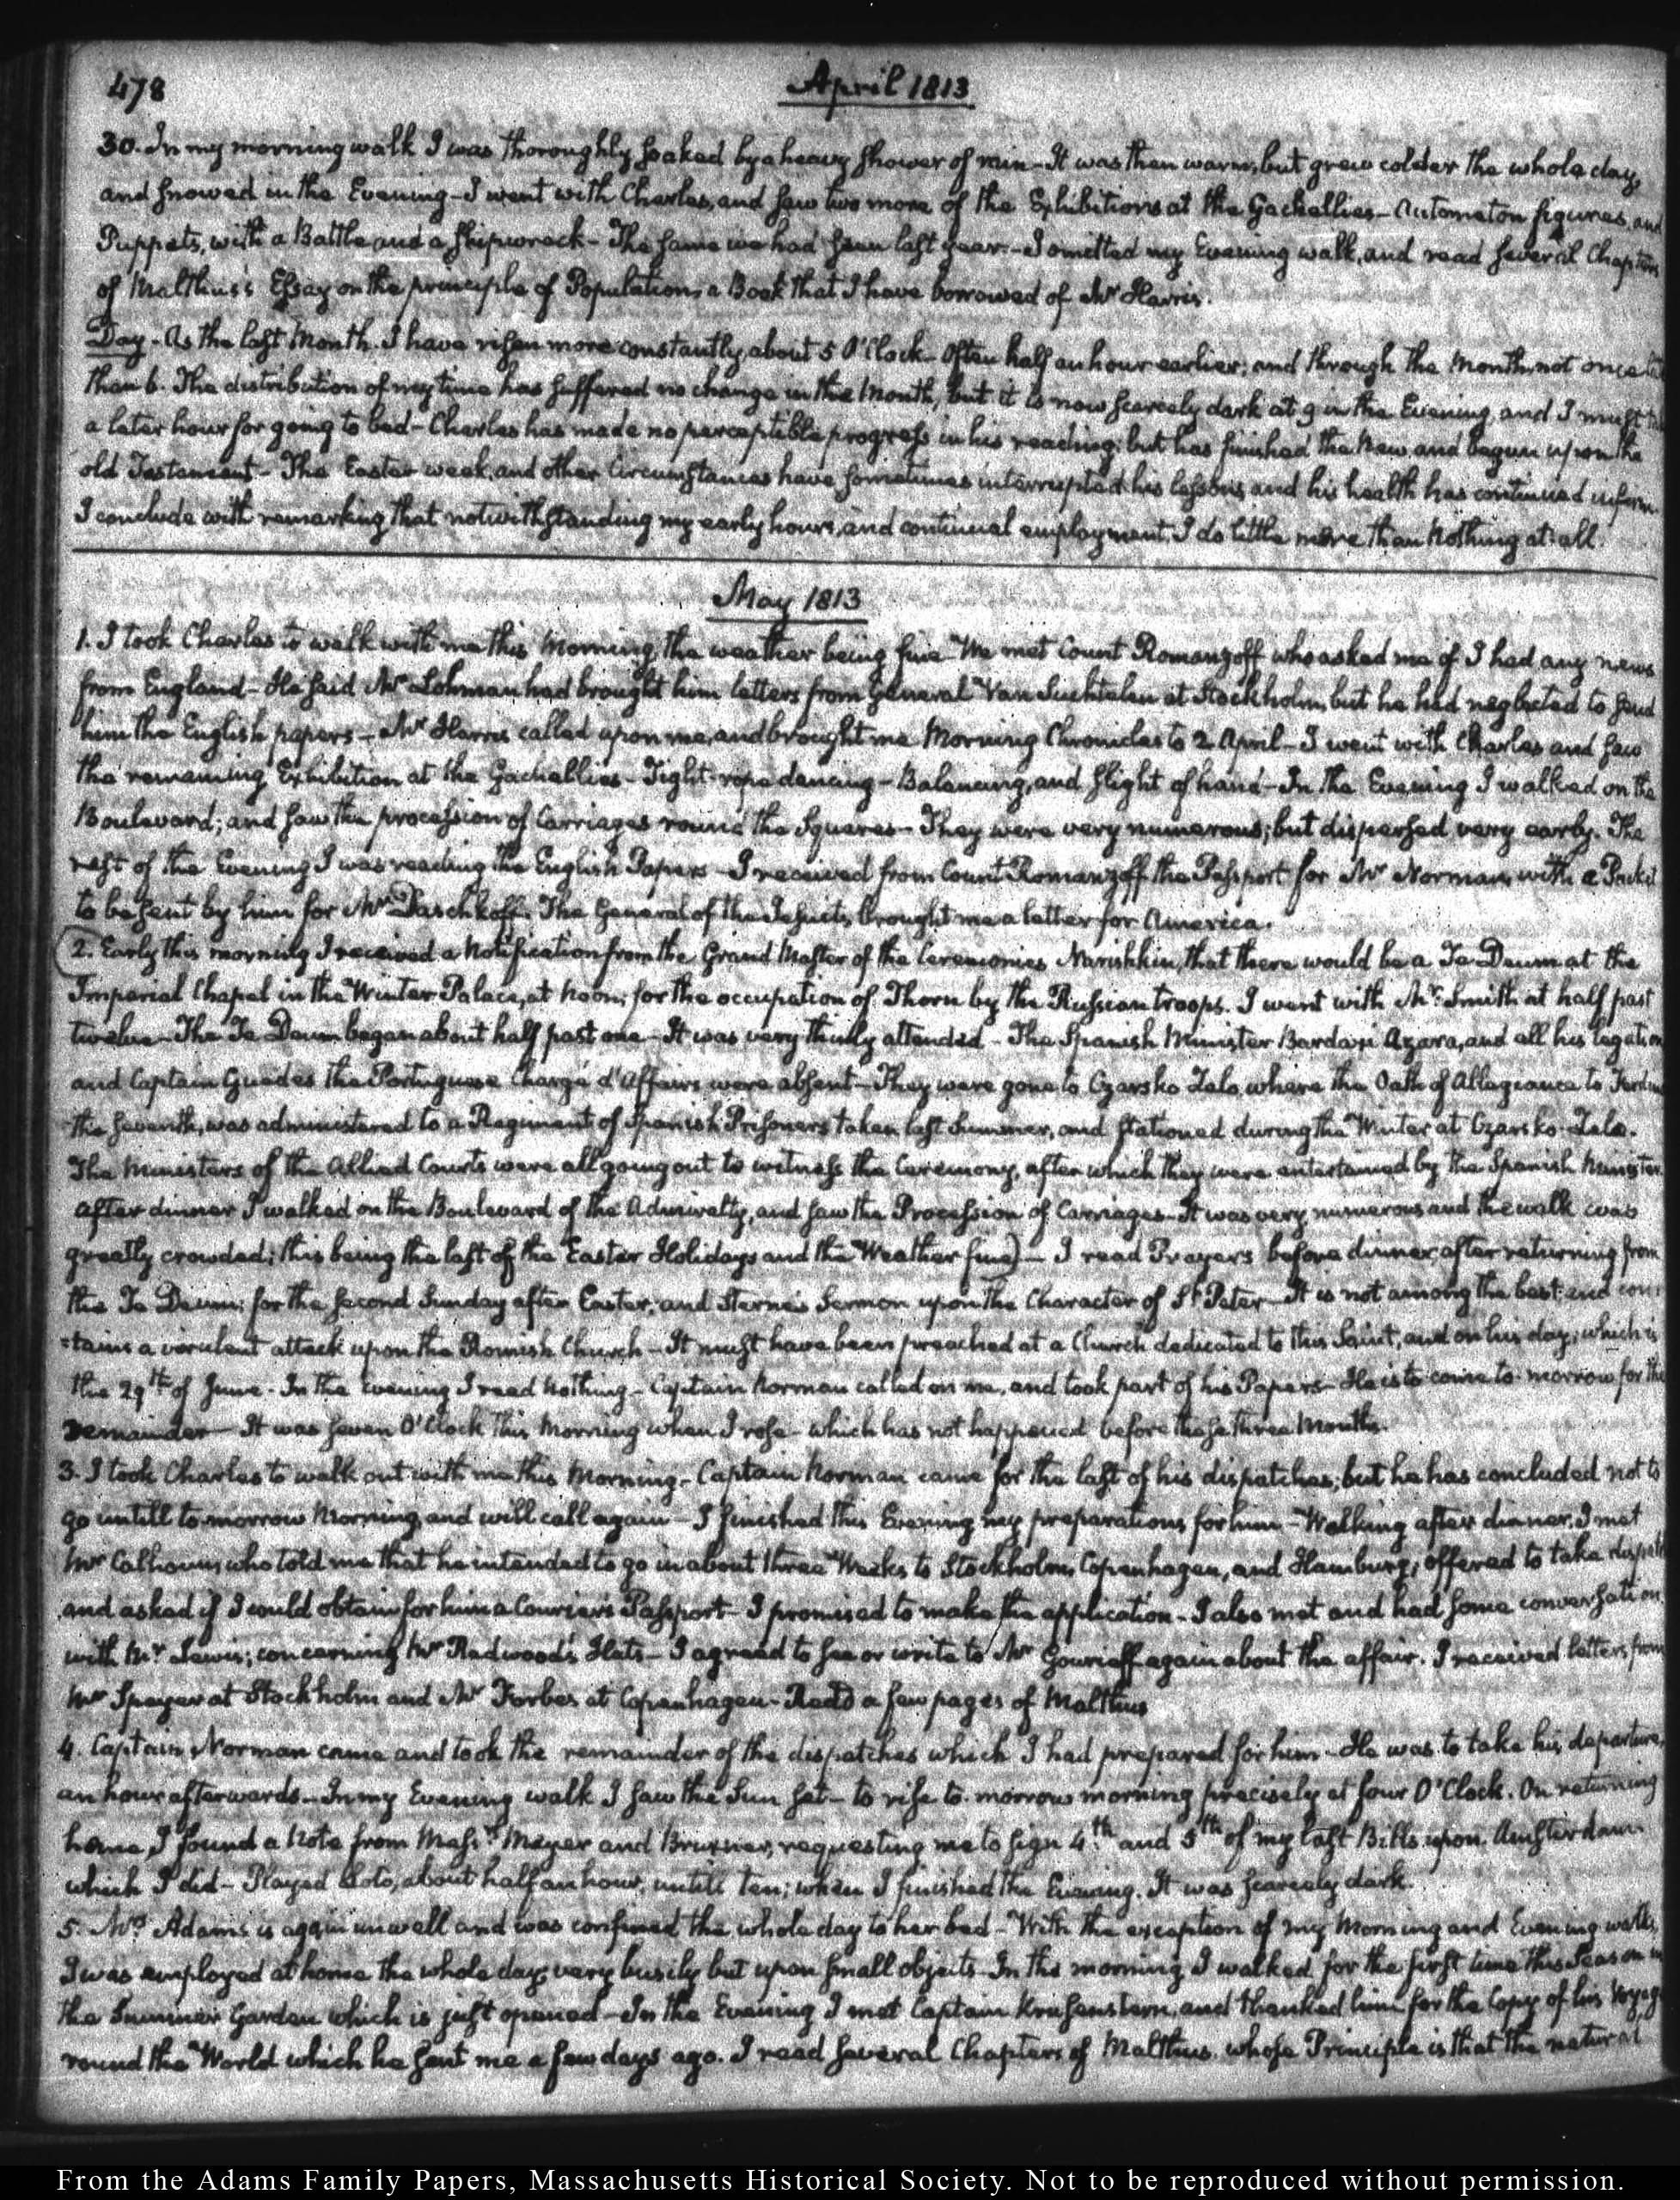 478
April 1813
30. In my morning walk I was thoroughly soaked by a heavy shower of rain – It was then warm, but grew colder the whole day,
and snowed in the Evening – I went with Charles, and saw two more of the Exhibitions at the Gachellies – Automaton figures, and
Puppets, with a Battle and a shipwreck – The same we had seen last year. – I omitted my Evening walk, and read several Chapters
of Malthus's Essay on the principle of Population, a Book that I have borrowed of Mr Harris.
Day – As the last Month. I have risen more constantly, about 5 O'Clock – Often half an hour earlier; and through the Month, not once
than 6. The distribution of my time has suffered no change in the Month, but it is now scarcely dark at 9 in the Evening and I must
a later hour for going to bed – Charles has made no perceptible progress in his reading; but has finished the New and begun upon the
old Testament – The Easter week, and other Circumstances have sometimes interrupted his lessons, and his health has continued infirm.
I conclude with remarking that notwithstanding my early hours, and continual employment, I do little more than Nothing at all.
May 1813
1. I took Charles to walk with me this Morning, the weather being fine – We met Count Romanzoff who asked me if I had any news
from England – He said Mr Lohman had brought him letters from General Van Suchtelen at Stockholm, but he had neglected to send
him the English papers – Mr Harris called upon me, and brought me Morning Chronicles to 2 April – I went with Charles and saw
the remaining Exhibition at the Gachellies – Tight-rope dancing – Balancing, and slight of hand – In the Evening I walked on the
Boulevard; and saw the procession of Carriages round the Squares – They were very numerous; but dispersed very early. The
rest of the Evening I was reading the English Papers – I received from Count Romanzoff the Passport for Mr Norman, with a Packet
to be sent by him for Mr Daschkoff. The General of the Jesuits, brought me a letter for America.
2. Early this morning I received a Notification from the Grand Master of the Ceremonies Narishkin, that there would be a Te Deum at the
Imperial Chapel in the Winter Palace, at Noon; for the occupation of Thorn by the Russian troops. I went with Mr Smith at half past
twelve – The Te Deum began about half past one – It was very thinly attended – The Spanish Minister Bardaxi Azara, and all his legation
and Captain Guedes the Portuguese Chargé d'Affairs were absent – They were gone to Czarsko Zelo, where the Oath of Allegiance to
the Seventh, was administered to a Regiment of Spanish Prisoners taken last Summer, and stationed during the Winter at Czarsko-Zelo.
The Ministers of the Allied Courts were all going out to witness the Ceremony, after which they were entertained by the Spanish Minister.
After dinner I walked on the Boulevard of the Admiralty, and saw the Procession of Carriages – It was very numerous and the walk was
greatly crowded; this being the last of the Easter Holidays and the Weather fine) – I read Prayers before dinner, after returning from
the Te Deum; for the second Sunday after Easter, and Sterne's Sermon upon the Character of St Peter – It is not among the best; and con=
=tains a virulent attack upon the Romish Church – It must have been preached at a Church dedicated to this Saint, and on his day, which is
the 29th of June – In the Evening I read Nothing – Captain Norman called on me, and took part of his Papers – He is to come to-morrow for the
remainder – It was seven O'Clock this Morning when I rose – which has not happened before these three Months.
3. I took Charles to walk out with me this Morning – Captain Norman came for the last of his dispatches; but he has concluded not to
go untill to-morrow Morning, and will call again – I finished this Evening my preparations for him – Walking after dinner, I met
Mr Calhoun, who told me that he intended to go in about three Weeks to Stockholm, Copenhagen, and Hamburg; offered to take
and asked if I could obtain for him a Courier's Passport – I promised to make the application – I also met and had some conversation
with Mr Lewis; concerning Mr Redwood's Hats – I agreed to see or write to Mr Gourieff again about the affair. I received letters from
Mr Speyer at Stockholm and Mr Forbes at Copenhagen – Read a few pages of Malthus
4. Captain Norman came and took the remainder of the dispatches which I had prepared for him – He was to take his departure,
an hour afterwards – In my Evening walk I saw the Sun set – to rise to-morrow morning precisely at four O'Clock. On returning
home, I found a Note from Messrs Meyer and Bruxner, requesting me to sign 4th and 5th of my last Bills upon Amsterdam
which I did – Played Loto, about half an hour, untill ten; when I finished the Evening. It was scarcely dark.
5. Mrs Adams is again unwell and was confined the whole day to her bed – With the exception of my Morning and Evening walks,
I was employed at home the whole day, very busily but upon small objects – In the morning I walked for the first time this Season in
the Summer Garden which is just opened – In the Evening I met Captain Krusenstern, and thanked him for the Copy of his Voyage
round the World which he sent me a few days ago. I read several Chapters of Malthus, whose Principle is that the natural
From the Adams Family Papers, Massachusetts Historical Society. Not to be reproduced without permission.